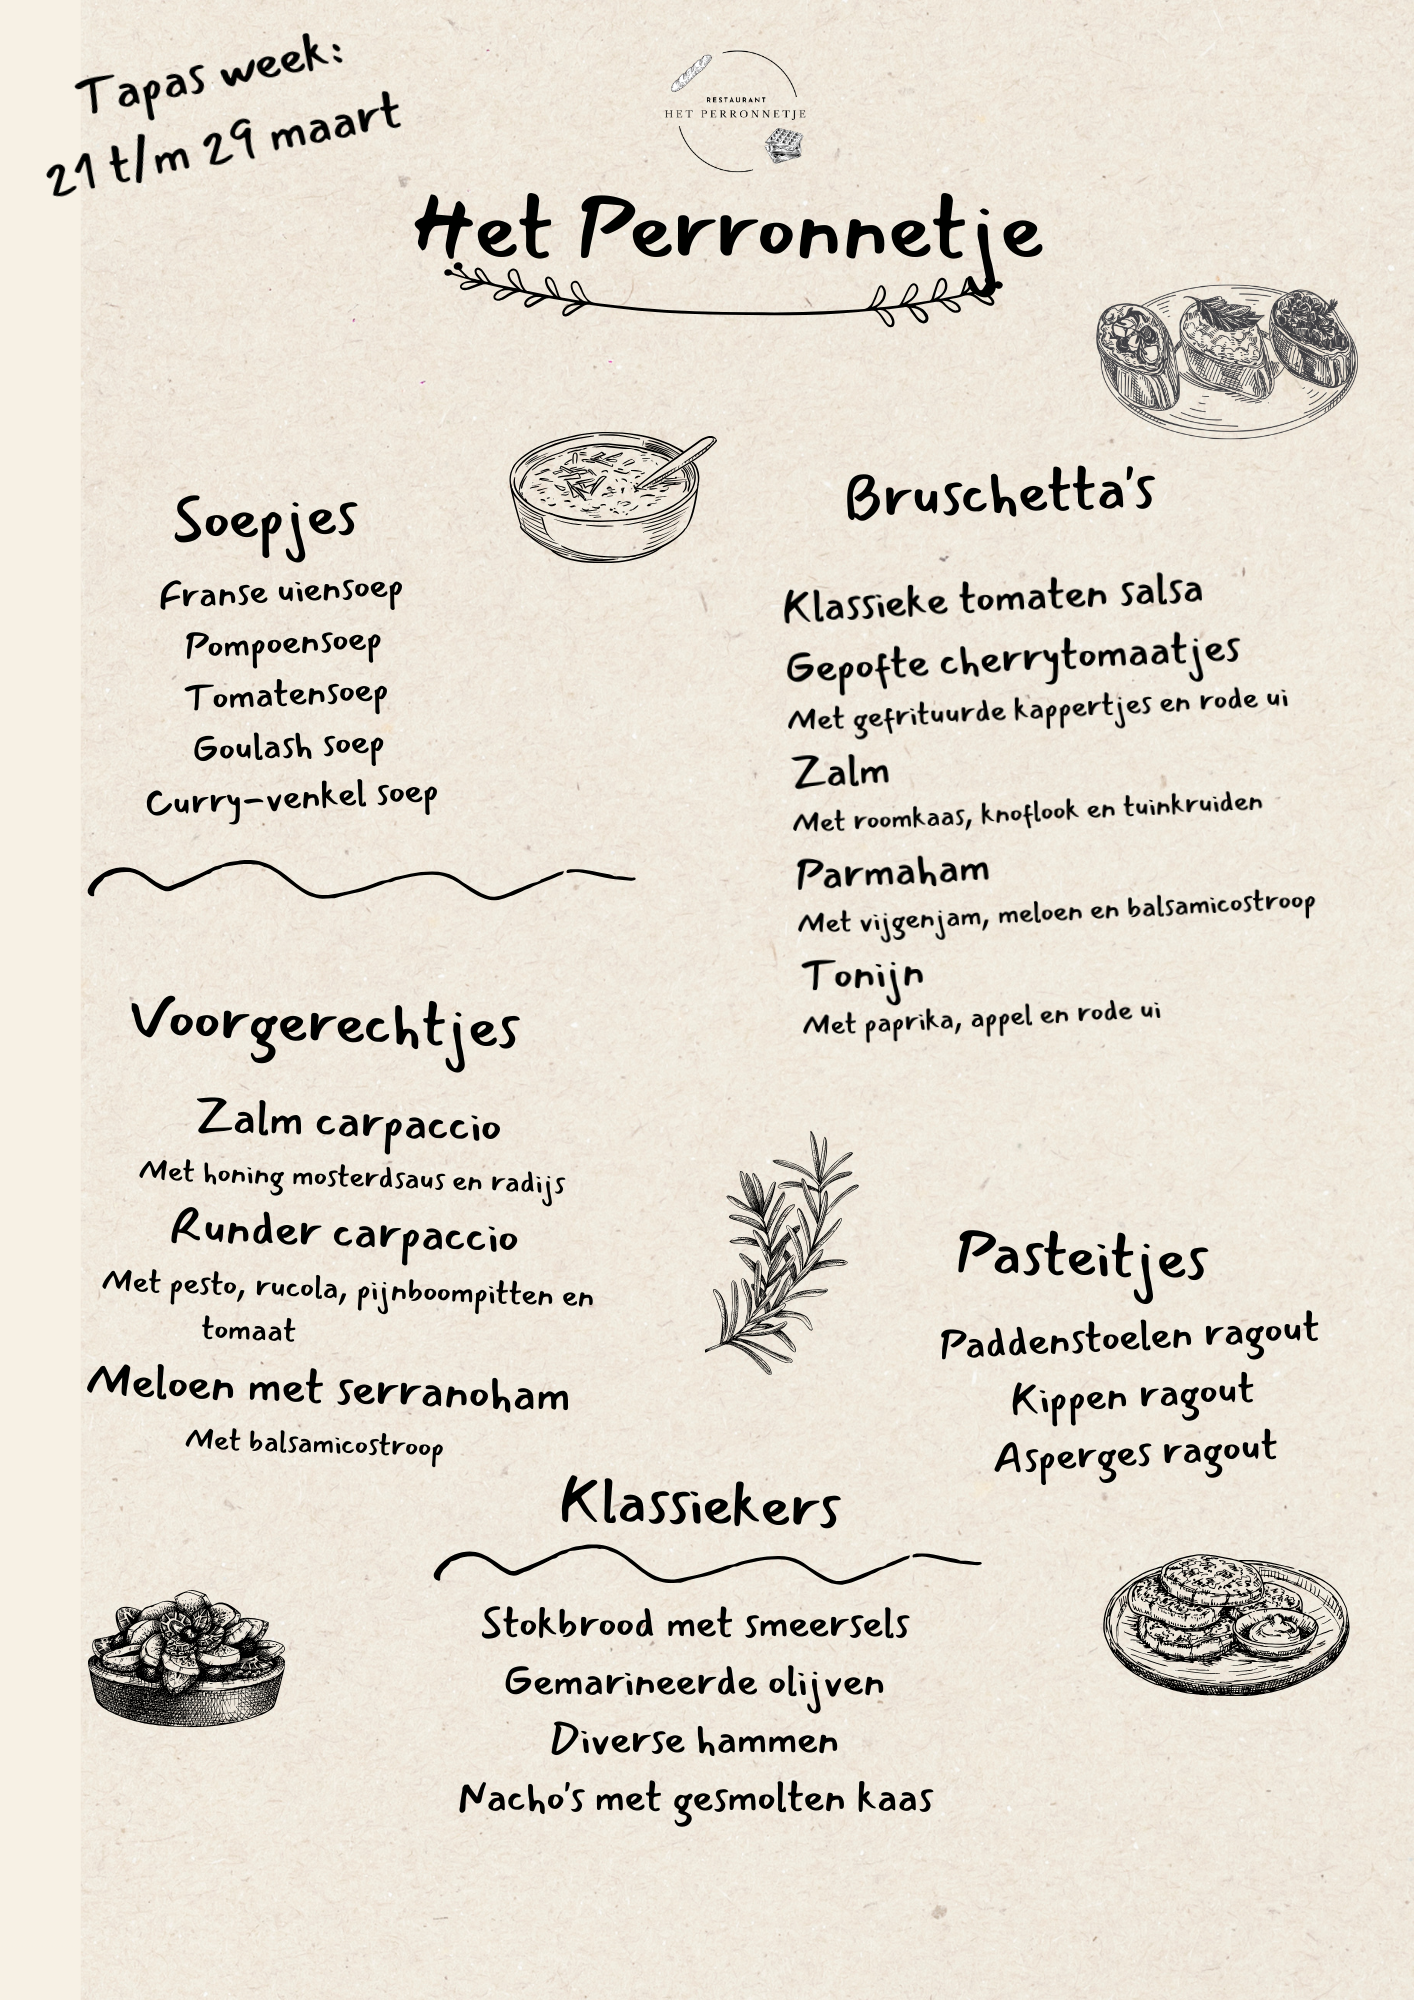 Tapas week:
21 t/m 29 maart
RESTAURANT
HET PERRONNETJE
Het Perronnetje
Soepjes
Franse uiensoep
Pompoensoep
Tomatensoep
Goulash soep
Curry-venkel soep
Bruschetta's
Klassieke tomaten salsa
Gepofte cherrytomaatjes
Met gefrituurde kappertjes en rode ui
Zalm
Met roomkaas, knoflook en tuinkruiden
Parmaham
Met vijgenjam, meloen en balsamicostroop
Tonijn
Met paprika, appel en rode ui
Voorgerechtjes
Zalm carpaccio
Met honing mosterdsaus en radijs
Runder carpaccio
Met pesto, rucola, pijnboompitten en
tomaat
Meloen met serranoham
Met balsamicostroop
Pasteitjes
Paddenstoelen ragout
Kippen ragout
Asperges ragout
Klassiekers
Stokbrood met smeersels
Gemarineerde olijven
Diverse hammen
Nacho's met gesmolten kaas